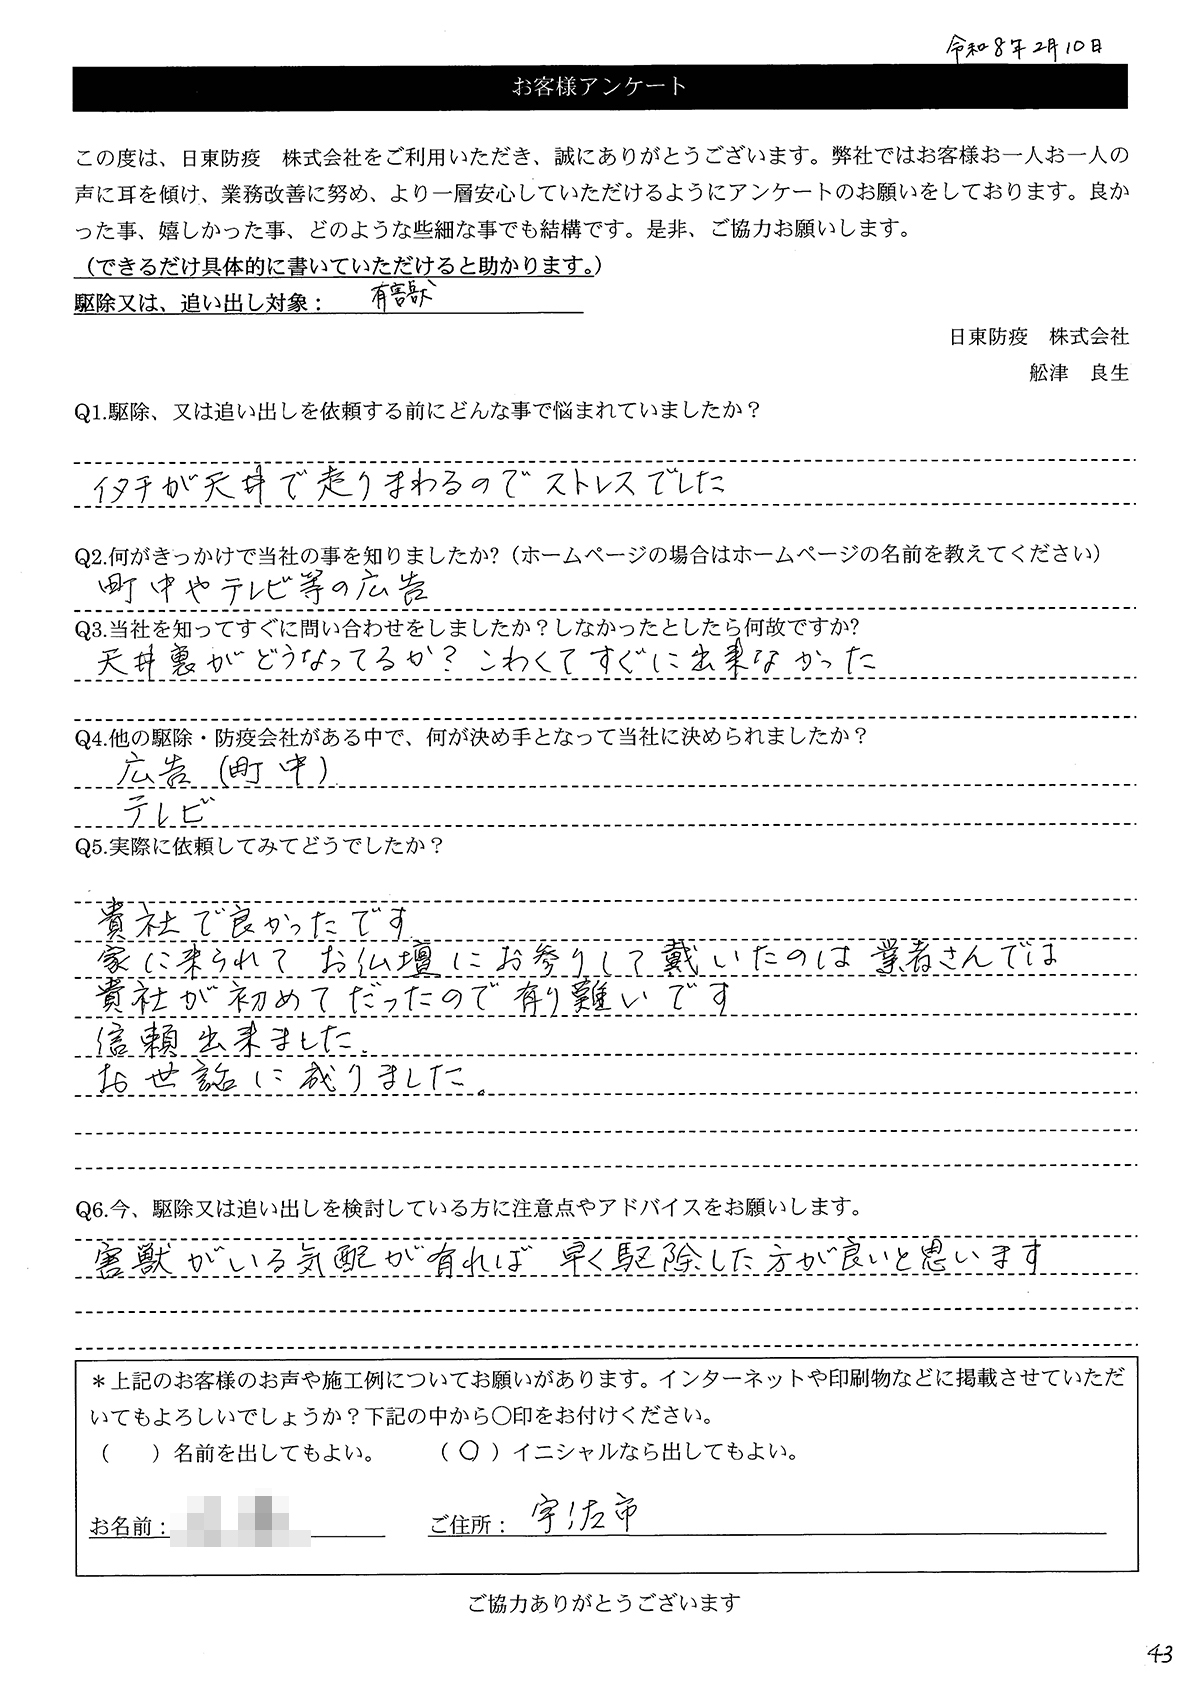 令和8年2月10日
お客様アンケート
この度は、日東防疫　株式会社をご利用いただき、誠にありがとうございます。弊社ではお客様お一人お一人の
声に耳を傾け、業務改善に努め、より一層安心していただけるようにアンケートのお願いをしております。良か
った事、嬉しかった事、どのような些細な事でも結構です。是非、ご協力お願いします。
（できるだけ具体的に書いていただけると助かります。）
駆除又は、追い出し対象：　有害獣
日東防疫　株式会社
舩津　良生
Q1.駆除、又は追い出しを依頼する前にどんな事で悩まれていましたか？
イタチが天井で走りまわるのでストレスでした
Q2.何がきっかけで当社の事を知りましたか?（ホームページの場合はホームページの名前を教えてください）
町中やテレビ等の広告
Q3.当社を知ってすぐに問い合わせをしましたか？しなかったとしたら何故ですか?
天井裏がどうなってるか？こわくてすぐに出来なかった
Q4.他の駆除・防疫会社がある中で、何が決め手となって当社に決められましたか？
広告（町中）
テレビ
Q5.実際に依頼してみてどうでしたか？
貴社で良かったです
家に来られて　お仏壇にお参りして戴いたのは業者さんでは
貴社が初めてだったので有り難いです
信頼出来ました。
お世話に成りました。
Q6.今、駆除又は追い出しを検討している方に注意点やアドバイスをお願いします。
害獣がいる気配が有れば　早く駆除した方が良いと思います
＊上記のお客様のお声や施工例についてお願いがあります。インターネットや印刷物などに掲載させていただ
いてもよろしいでしょうか？下記の中から〇印をお付けください。
（　　）名前を出してもよい。　　（〇）イニシャルなら出してもよい。
お名前：　　ご住所：　宇佐市
ご協力ありがとうございます
43